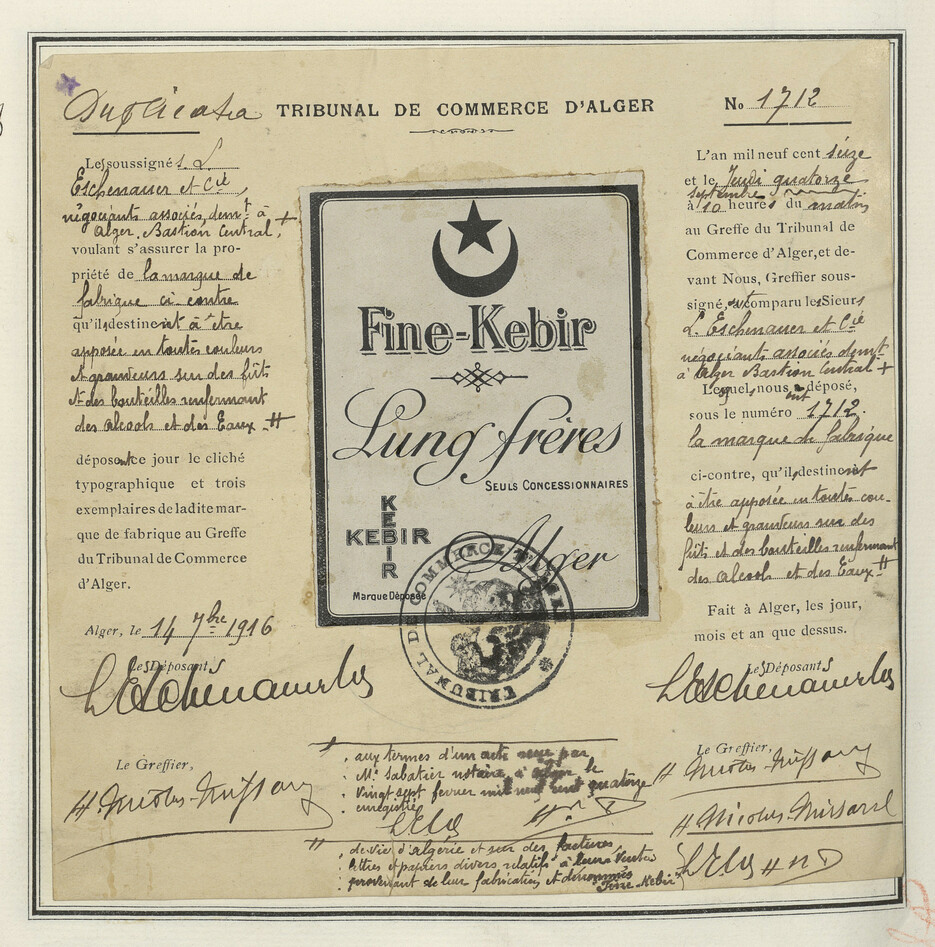 Duplicata
TRIBUNAL DE COMMERCE D'ALGER
No 1712
Les soussignés L.
Eschenauer et Cie,
négociants associés, demt à +
Alger. Bastion Central,
voulant s'assurer la pro-
priété de la marque de
fabrique ci-contre
qu'ils destinent à être
apposée en toutes couleurs
et grandeurs sur des fûts
et des bouteilles renfermant
des alcools et des Eaux #
déposent ce jour le cliché
typographique et trois
exemplaires de ladite mar-
que de fabrique au Greffe
du Tribunal de Commerce
d'Alger.
Alger, le 14 7bre 1916
Les Déposants
Le Greffier,
Fine-Kebir
Lung frères
SEULS CONCESSIONNAIRES
KEBIR
KEBIR
Alger
Marque Déposée
TRIBUNAL DE COMMERCE
L'an mil neuf cent seize
et le Jeudi quatorze
septembre
à 10 heures du matin
au Greffe du Tribunal de
Commerce d'Alger, et de-
vant Nous, Greffier sous-
signé, ont comparu les Sieurs
L. Eschenauer et Cie
négociants associés demt
à Alger Bastion Central +
Lesquels nous ont déposé,
sous le numéro 1712.
la marque de fabrique
ci-contre, qu'ils destinent
à être apposée en toutes cou-
leurs et grandeurs sur des
fûts et des bouteilles renfermant
des alcools et des Eaux #
Fait à Alger, les jour,
mois et an que dessus.
Les Déposants
Le Greffier,
+ aux termes d'un acte reçu par
Me Sabatier notaire à Alger le
vingt sept fevrier mil neuf cent quatorze
enregistré
# de-vie d'algérie et sur des factures
lettres et papiers divers relatifs à leurs Ventes
provenant de leur fabrication et dénommés
"Fine-Kebir"